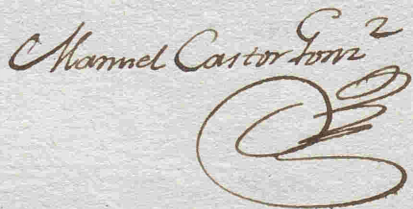 Manuel Castor Gonz